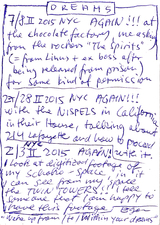 DREAMS
7/8 II 2015 NYC AGAIN!!! at
the chocolate factory, me asks
from the rockers "The Spirits"
(from Linus + ex boss after
being released from prison
for some kind of permission
27/28 II 2015 NYC AGAIN!!!
with the NISPELS in California
in their House, talking about
214 Lafayette and how to proceed
2/3 II 2015 NYC AGAIN
look at digital footage of
my schable-space, and it
can see from my space
the TWIN TOWERS! I tell
someone that I am happy to
have that footage
wake up from / to / within your dreams